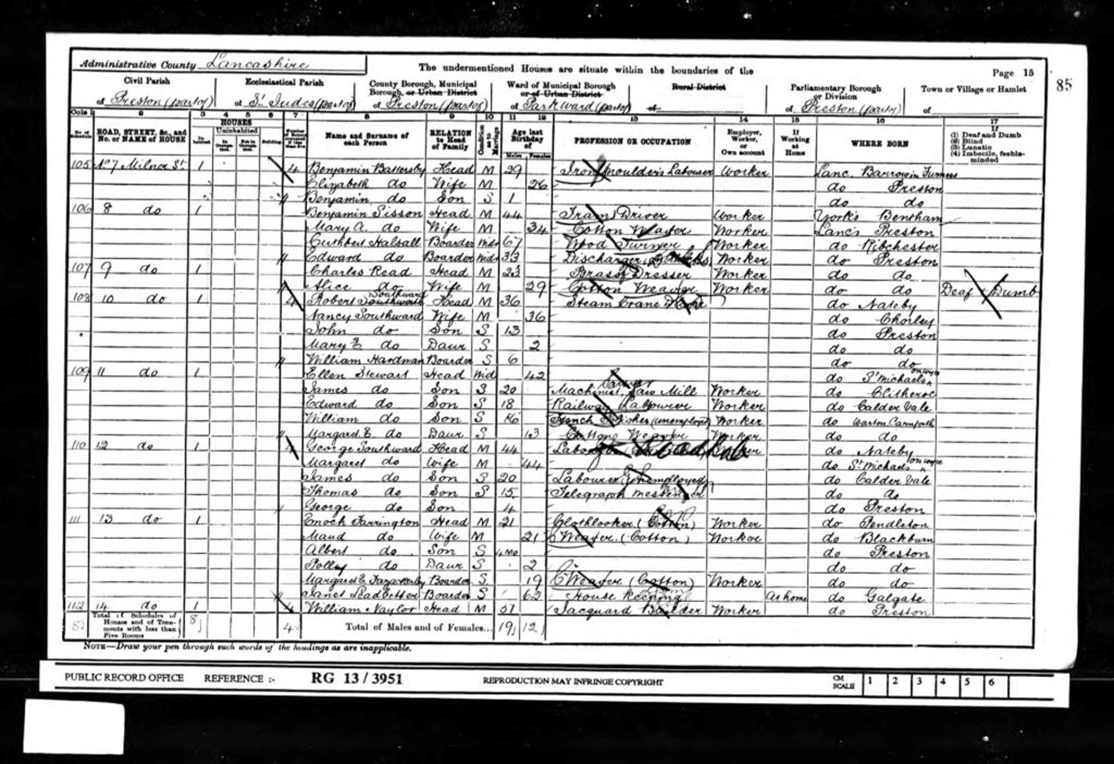 Administrative County Lancashire
The undermentioned Houses are situate within the boundaries of the
Page 15
85
Civil Parish
Ecclesiastical Parish
County Borough, Municipal Borough, or Urban District
Ward of Municipal Borough or of Urban District
Rural District
Parliamentary Borough or Division
Town or Village or Hamlet
of Preston (part of) of St Judes (part of) of Preston (part of) of Park ward (part of) of of Preston (part of) of
ROAD, STREET, &c., and No. or NAME of HOUSE HOUSES Uninhabited Building Name and Surname of each Person RELATION to Head of Family Condition as to Marriage Age last Birthday of Males Females PROFESSION OR OCCUPATION Employer, Worker, or Own account If Working at Home WHERE BORN (1) Deaf and Dumb (2) Blind (3) Lunatic (4) Imbecile, feeble-minded
105 No 7 Milner St 1 4 Benjamin Battersby Head M 29 Iron Moulder's Labourer Worker Lanc. Barrow in Furness
Elizabeth do Wife M 26 do Preston
Benjamin do Son S 1 do do
106 8 do 1 Benjamin Sisson Head M 44 Tram Driver Worker Yorks Bentham
Mary A. do Wife M 34 Cotton Weaver Worker Lancs Preston
Cuthbert Halsall Boarder Widr 67 Wood Turner Worker do Ribchester
Edward do Boarder Widr 33 Discharger Worker do Preston
107 9 do 1 Charles Read Head M 23 Brass Dresser Worker do do
Alice do Wife M 29 Cotton Weaver Worker do do Deaf & Dumb
108 10 do 1 4 Robert Southworth Southward Head M 36 Steam Crane do Nateby
Nancy Southward Wife M 36 do Chorley
John do Son S 13 do Preston
Mary E do Daur S 2 do do
William Hardman Boarder S 6 do do
109 11 do 1 Ellen Stewart Head Wid 42 do St Michaels on wyre
James do Son S 20 Machinist, Saw Mill Worker do Clitheroe
Edward do Son S 18 Railway Labourer Worker do Calder Vale
William do Son S 16 French Polisher (unemployed) Worker do Warton Carnforth
Margaret E do Daur S 13 Cotton Weaver Worker do do
110 12 do 1 George Southward Head M 44 Labourer Worker do Nateby
Margaret do Wife M 44 do St Michaels on wyre
James do Son S 20 Labourer (Unemployed) do Calder Vale
Thomas do Son S 15 Telegraph Messenger do do
George do Son 4 do Preston
111 13 do 1 Enoch Farrington Head M 21 Clothlooker (Cotton) Worker do Pendleton
Maud do Wife M 21 Weaver (Cotton) Worker do Blackburn
Albert do Son S 4 mo do Preston
Polly do Daur S 2 do do
Margaret E Fazackerley Boarder S 19 Weaver (Cotton) Worker do do
Janet Leadbetter Boarder S 62 House Keeping At home do Galgate
112 14 do 1 William Naylor Head M 51 Jacquard Builder Worker do Preston
8 Total of Schedules of Houses and of Tenements with less than Five Rooms 8 4 Total of Males and of Females... 19 12
NOTE—Draw your pen through such words of the headings as are inapplicable.
PUBLIC RECORD OFFICE REFERENCE :- RG 13/3951 REPRODUCTION MAY INFRINGE COPYRIGHT CM SCALE 1 2 3 4 5 6